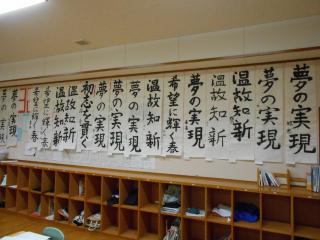 夢の実現
夢の実現
温故知新
温故知新
夢の実現
希望に輝く春
温故知新
夢の実現
夢の実現
夢の実現
初志を貫く
温故知新
温故知新
希望に輝く春
希望に輝く春
夢の実現